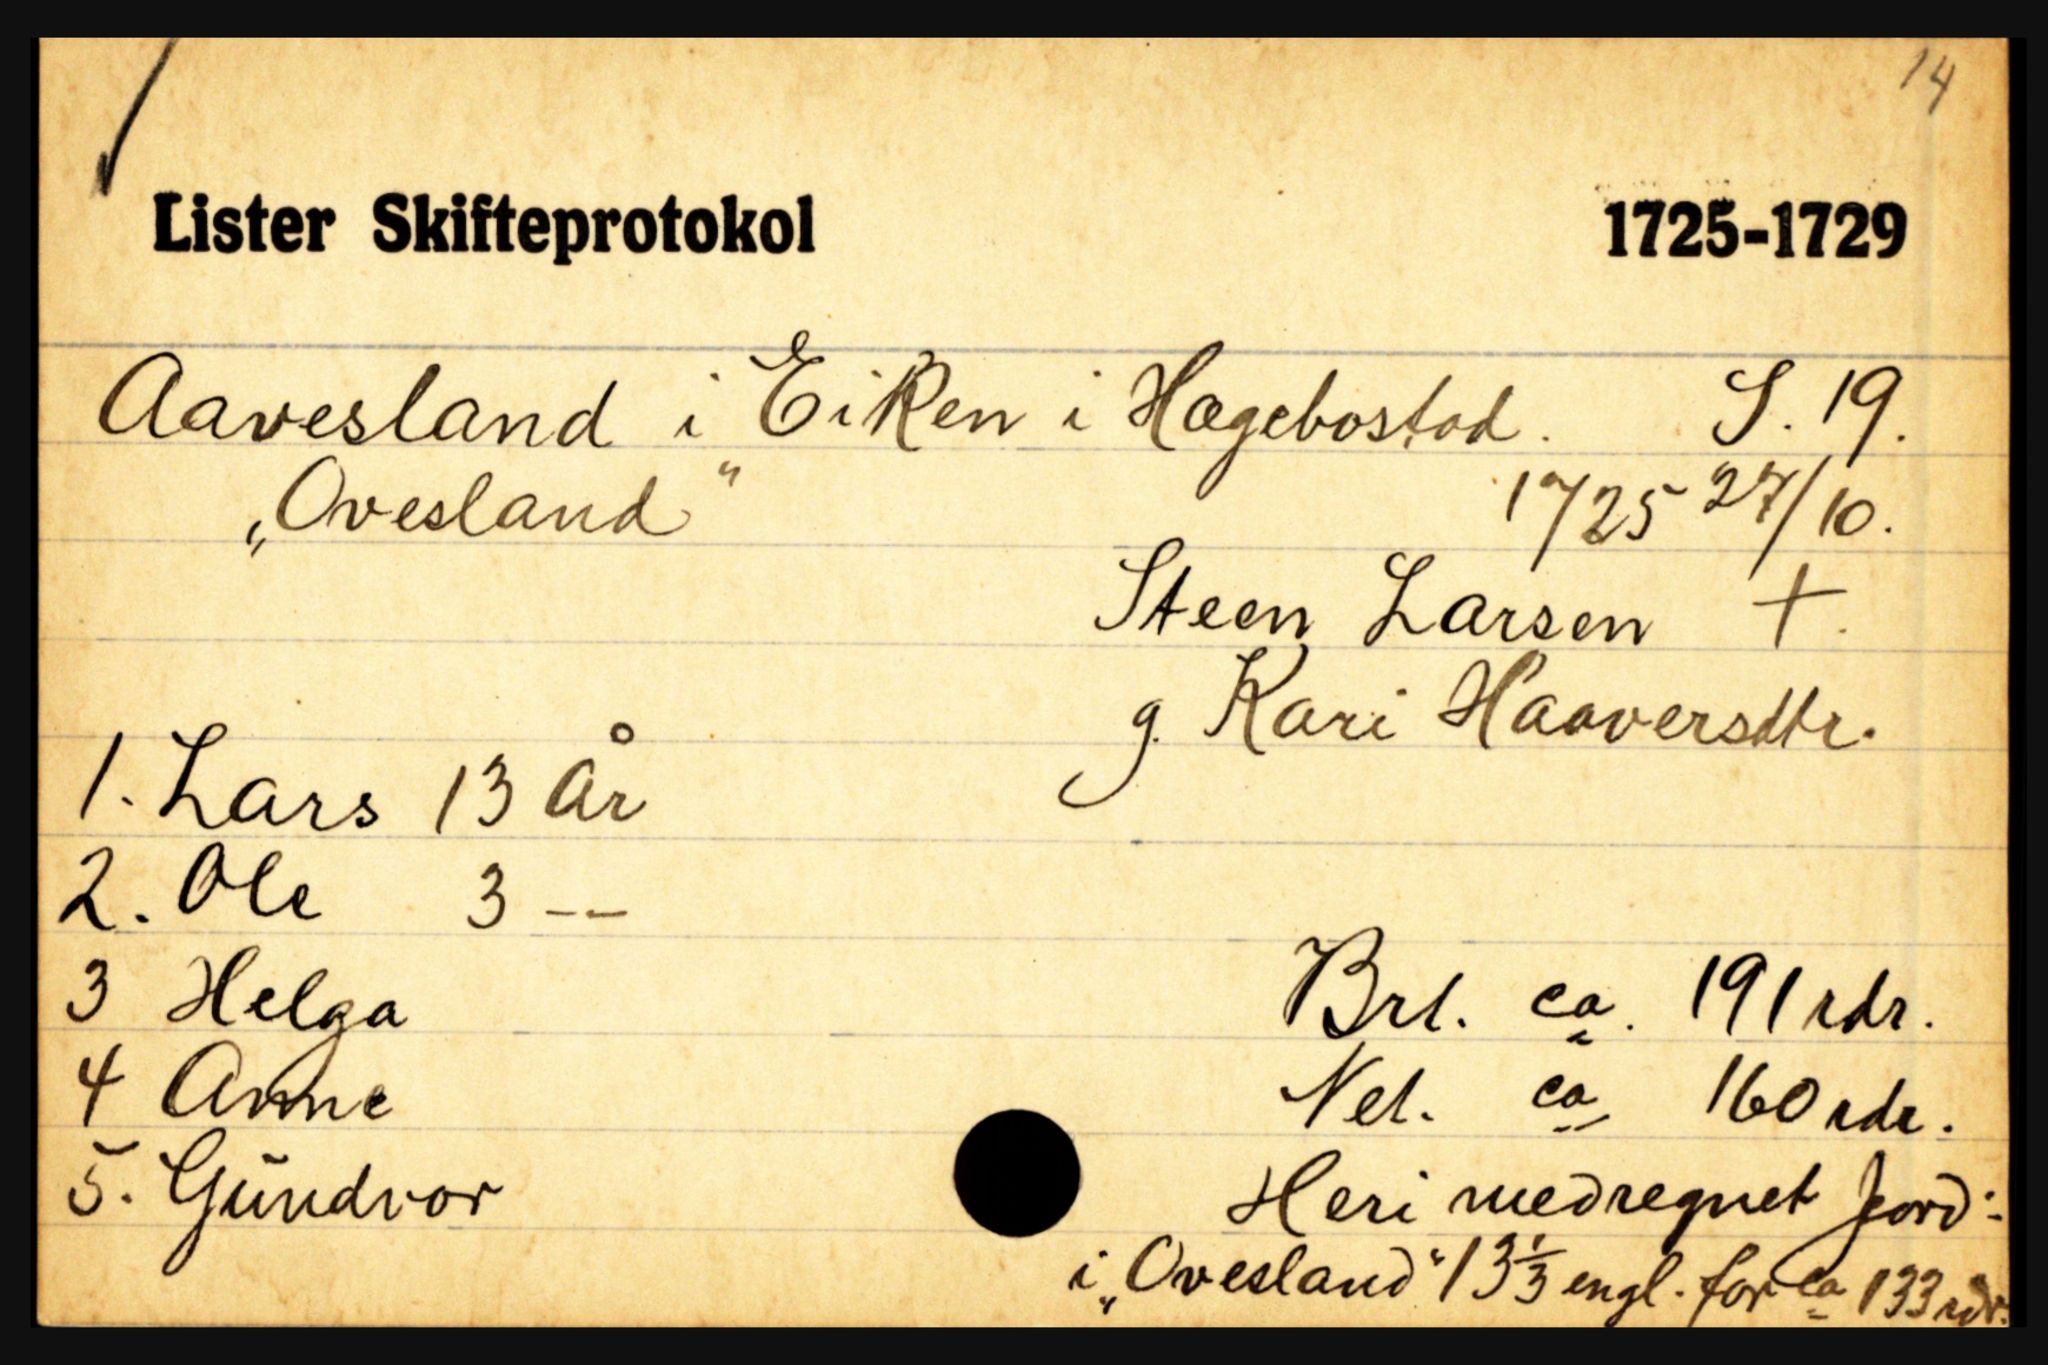 14
Lister Skifteprotokol 1725-1729
Aavesland i Eiken i Hægebostad. S. 19.
„Ovesland" 1725 27/10.
Steen Larsen +.
g. Kari Haaversdtr.
1. Lars 13 År
2. Ole 3 --
3 Helga
4 Anne
5. Gŭndvor
Brt. ca. 191 rdr.
Net. ca 160 rdr.
Heri medregnet jord:
i „Ovesland" 13 1/3 engl. for ca 133 rdr.